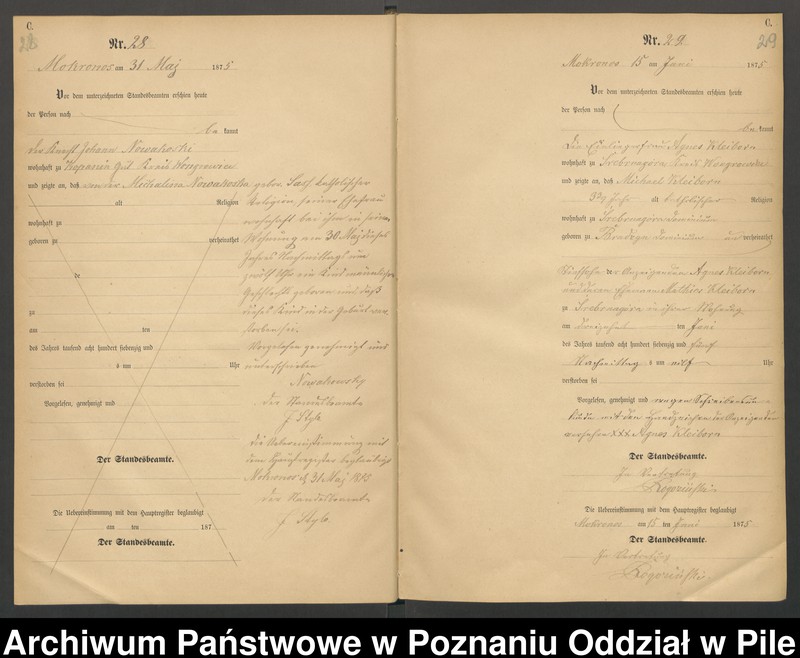 C.
28
Nr. 28
Mokronos am 31 Maj 1875
Vor dem unterzeichneten Standesbeamten erschien heute
der Person nach
be kannt
der Knecht Johann Nowakoski
wohnhaft zu Kopanin Gut Kreis Wongrowiec
und zeigte an, daß von der Michalina Nowakoska gebor. katholischer
alt Religion Religion seiner Ehefrau
wohnhaft zu wohnhaft bei ihm in seiner
geboren zu verheirathet Wohnung am 30. Maj dieses
Jahres Nachmittags um
de zwölf Uhr ein Kind männlichen
Geschlechts geboren und daß
zu dieses Kind in der Geburt ver
am ten storben sei
des Jahres tausend acht hundert siebenzig und Vorgelesen genehmigt und
um Uhr unterschrieben
verstorben sei Nowakowsky
Vorgelesen, genehmigt und der Standesbeamte
J Style
die Uebereinstimmung mit
Der Standesbeamte. dem Hauptregister beglaubigt
Mokronos d. 31 Maj 1875
der Standesbeamte
Die Uebereinstimmung mit dem Hauptregister beglaubigt J Style
am ten 187
Der Standesbeamte.
C.
29
Nr. 29
Mokronos 15 am Juni 1875
Vor dem unterzeichneten Standesbeamten erschien heute
der Person nach
be kannt
Die Agnes Kleiborn
wohnhaft zu Srebrnagóra Kreis Wongrowitz
und zeigte an, daß Michael Kleiborn
Jahr alt katholischer Religion
wohnhaft zu Srebrnagóra Dominium
geboren zu Dominium un verheirathet
der Anzeigenden Agnes Kleiborn
und deren Ehemann Mathias Kleiborn
zu Srebrnagóra in ihrer Wohnung
am dreizehn ten Juni
des Jahres tausend acht hundert siebenzig und fünf
Nachmittag s um Uhr
verstorben sei
Vorgelesen, genehmigt und wegen Schreibenun
kunde mit den Handzeichen der Anzeigenden
versehen XXX Agnes Kleiborn
Der Standesbeamte.
In Vertretung
Rogoziński
Die Uebereinstimmung mit dem Hauptregister beglaubigt
Mokronos am 15 ten Juni 1875
Der Standesbeamte.
In Vertretung
Rogoziński
Archiwum Państwowe w Poznaniu Oddział w Pile